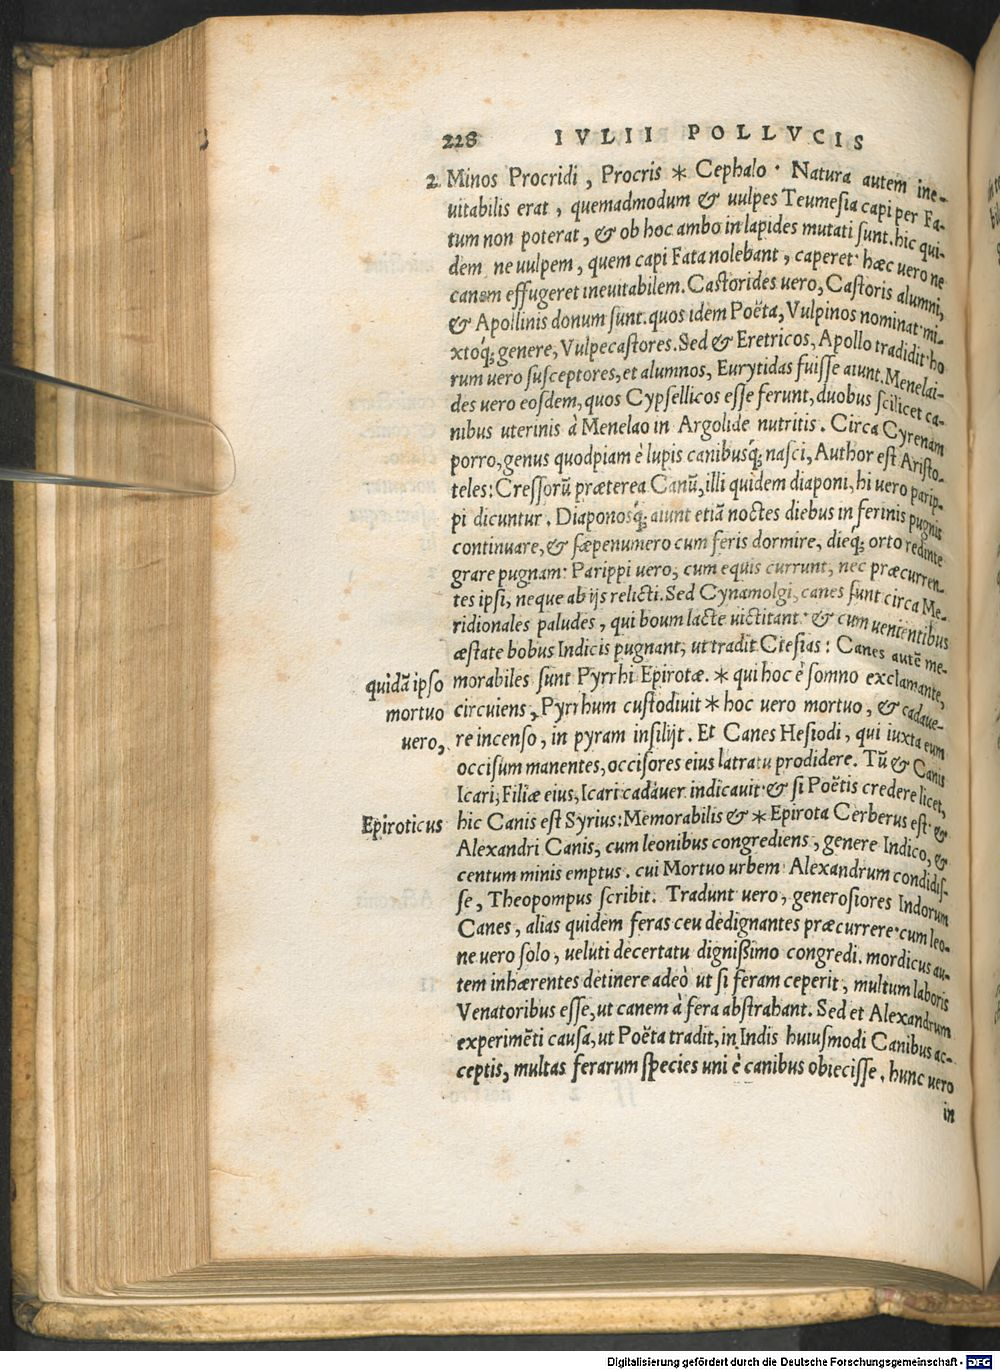 228 IVLII POLLVCIS
2 Minos Procridi, Procris * Cephalo. Natura autem ine-
uitabilis erat, quemadmodum & uulpes Teumesia capi per Fa-
tum non poterat, & ob hoc ambo in lapides mutati sunt. hic qui-
dem ne uulpem, quem capi Fata nolebant, caperet. hæc uero ne
canem effugeret ineuitabilem. Castorides uero, Castoris alumni,
& Apollinis donum sunt. quos idem Poëta, Vulpinos nominat. mi-
xtoq́; genere, Vulpecastores. Sed & Eretricos, Apollo tradidit. ho
rum uero susceptores, et alumnos, Eurytidas fuisse aiunt. Menelai-
des uero eosdem, quos Cypsellicos esse ferunt, duobus scilicet ca-
nibus uterinis à Menelao in Argolide nutritis. Circa Cyrenam
porro, genus quodpiam è lupis canibusq́; nasci, Author est Aristo-
teles: Cressorũ præterea Canũ, illi quidem diaponi, hi uero parip-
pi dicuntur. Diaponosq́; aiunt etiã noctes diebus in ferinis pugnis
continuare, & sæpenumero cum feris dormire, dieq́; orto redinte
grare pugnam: Parippi uero, cum equis currunt, nec præcurren-
tes ipsi, neque ab ijs relicti. Sed Cynamolgi, canes sunt circa Me-
ridionales paludes, qui boum lacte uictitant. & cum uenientibus
æstate bobus Indicis pugnant, ut tradit Ctesias: Canes autẽ me-
quidã ipso morabiles sunt Pyrrhi Epirotæ. * qui hoc è somno exclamante,
mortuo circuiens, Pyrrhum custodiuit * hoc uero mortuo, & cadaue-
uero, re incenso, in pyram insilijt. Et Canes Hesiodi, qui iuxta eum
occisum manentes, occisores eius latratu prodidere. Tũ & Canis
Icari, Filiæ eius, Icari cadauer indicauit. & si Poëtis credere licet,
Epiroticus hic Canis est Syrius: Memorabilis & * Epirota Cerberus est. &
Alexandri Canis, cum leonibus congrediens, genere Indico, &
centum minis emptus. cui Mortuo urbem Alexandrum condidis-
se, Theopompus scribit. Tradunt uero, generosiores Indorum
Canes, alias quidem feras ceu dedignantes præcurrere. cum leo-
ne uero solo, ueluti decertatu dignißimo congredi. mordicus au-
tem inhærentes detinere adeò ut si feram ceperit, multum laboris
Venatoribus esse, ut canem à fera abstrahant. Sed et Alexandrum
experimẽti causa, ut Poëta tradit, in Indis huiusmodi Canibus ac-
ceptis, multas ferarum species uni è canibus obiecisse. hunc uero
in
Digitalisierung gefördert durch die Deutsche Forschungsgemeinschaft - DFG